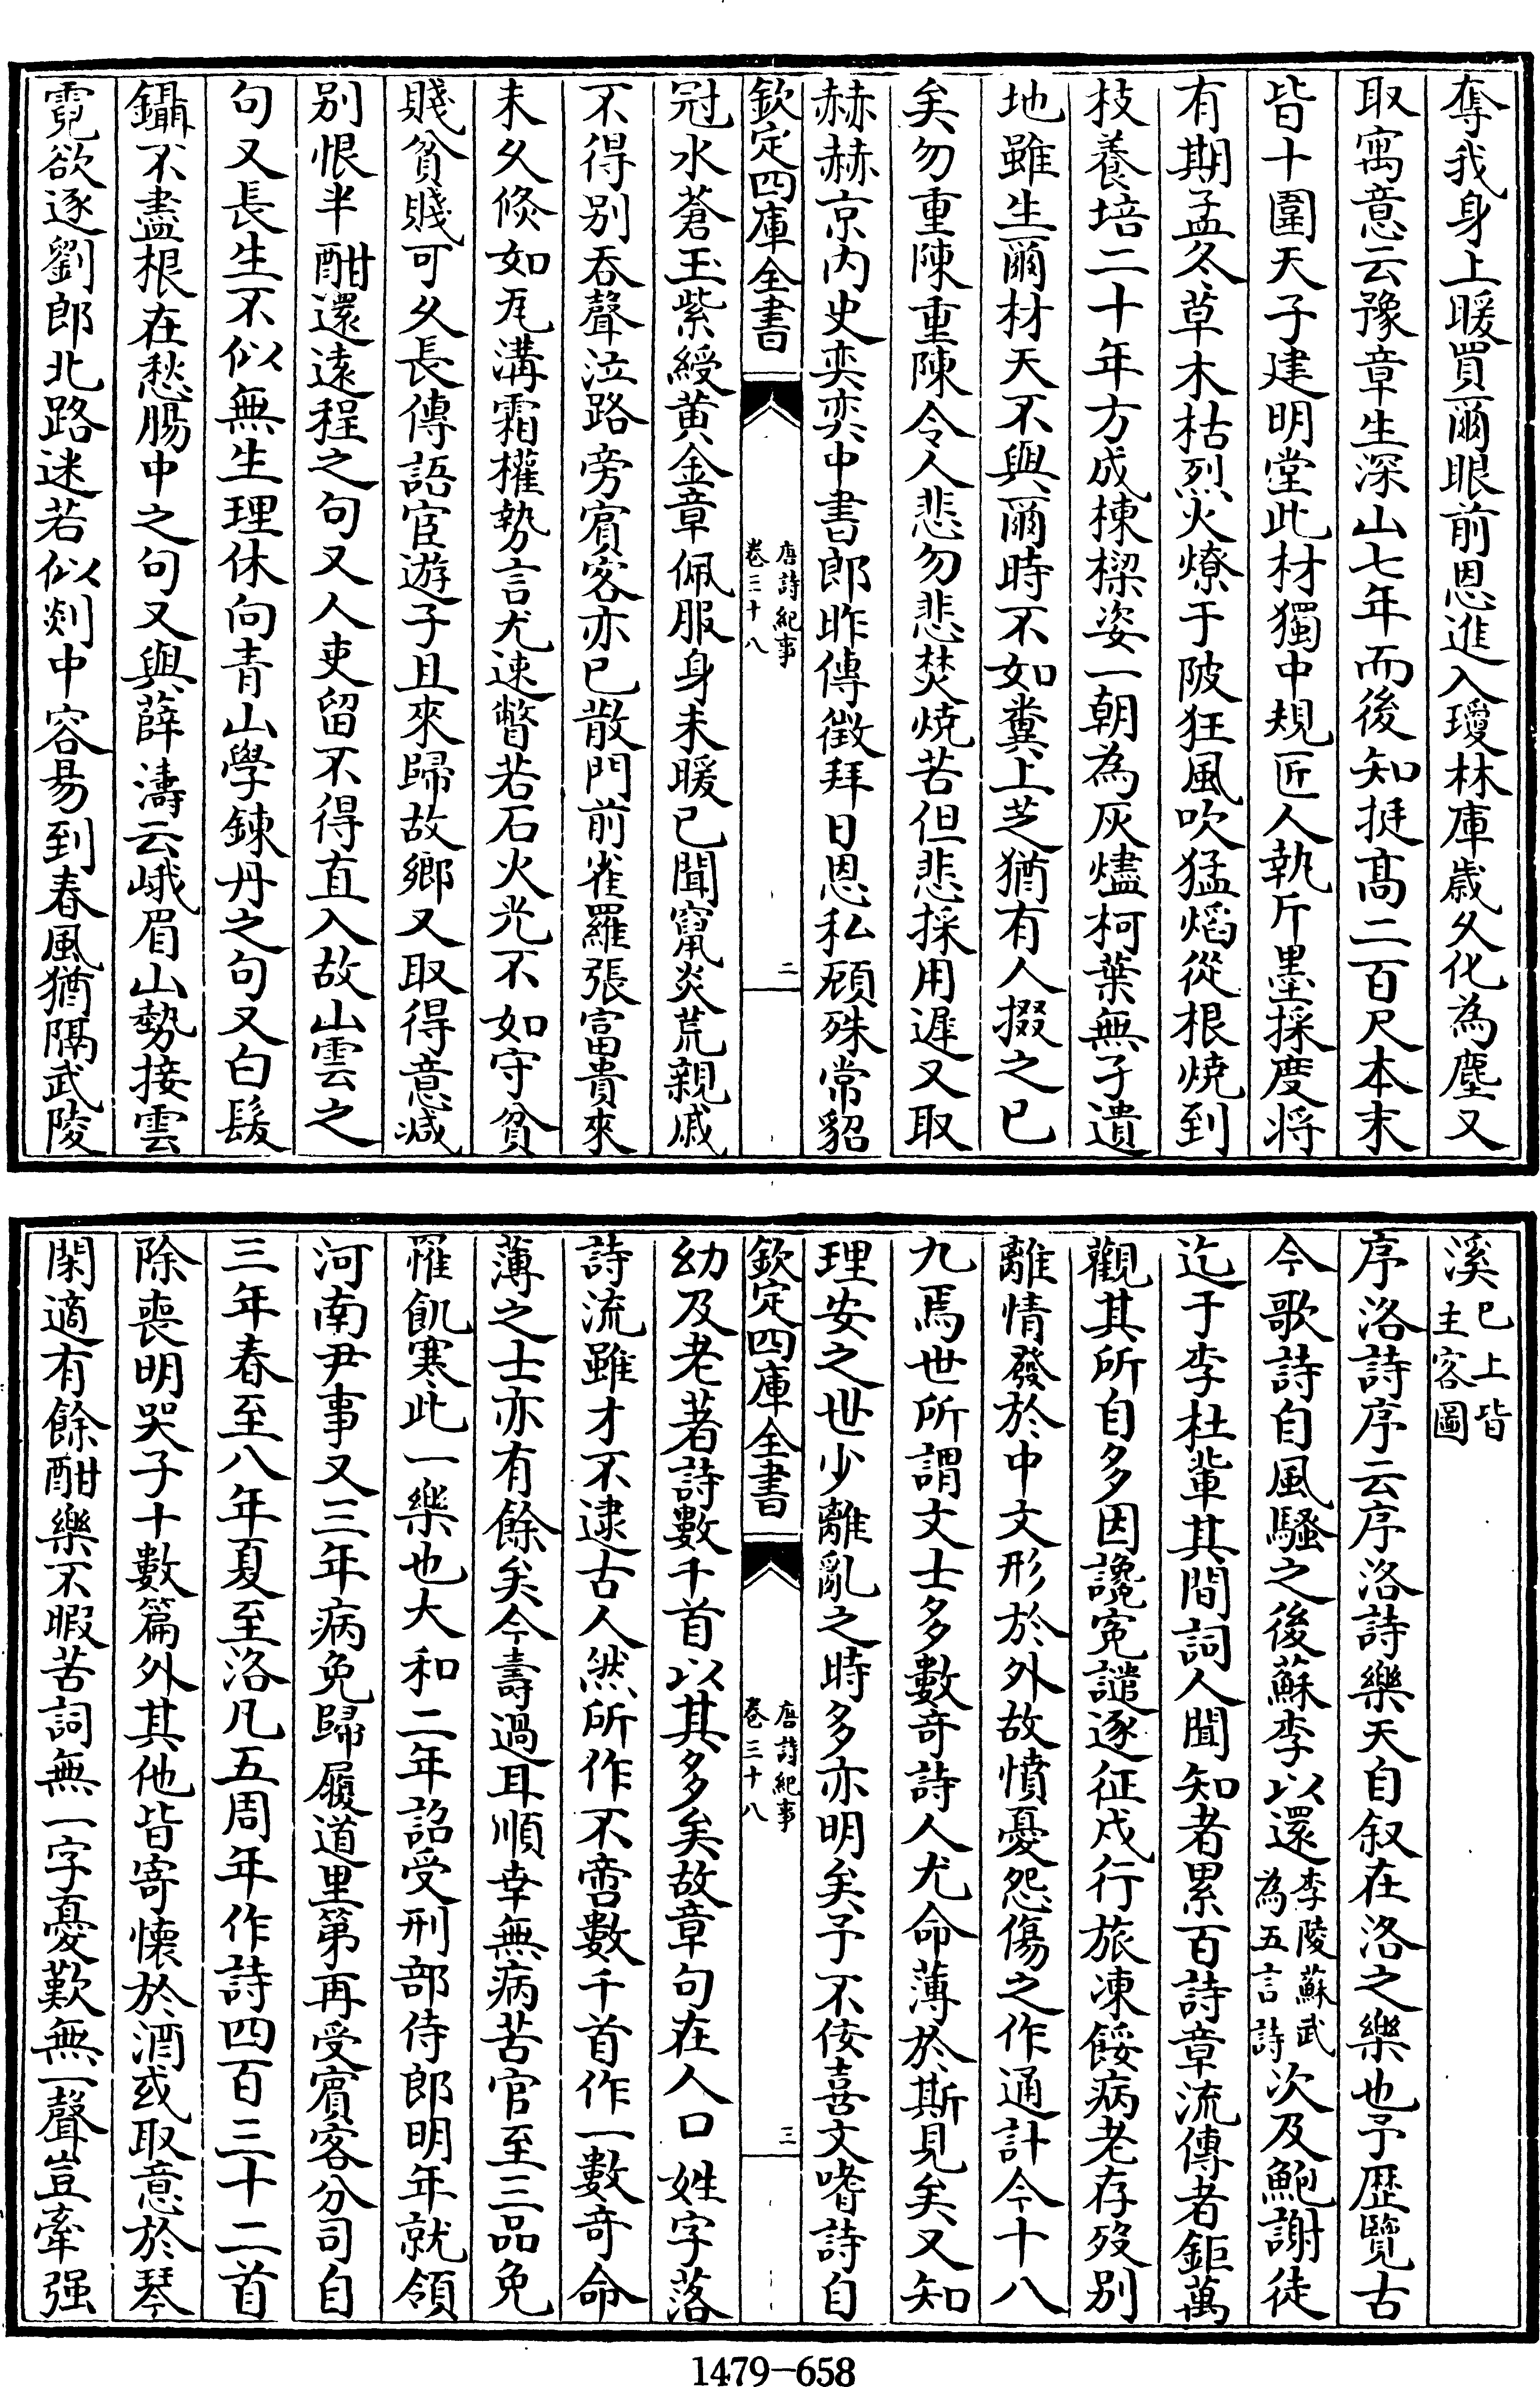 奪我身上暖買爾眼前恩進入瓊林庫歲久化為塵又
取寓意云豫章生深山七年而後知挺髙二百尺本末
皆十圍天子建明堂此材獨中規匠人執斤墨採度將
有期孟冬草木枯烈火燎于陂狂風吹猛熖從根燒到
枝養培二十年方成棟樑姿一朝為灰燼柯葉無孑遺
地雖生爾材天不與爾時不如糞上芝猶有人掇之已
矣勿重陳重陳令人悲勿悲焚燒苦但悲採用遲又取
赫赫京内史奕奕中書郎昨傳徵拜日恩私頋殊常貂
欽定四庫全書
唐詩紀事
卷三十八
二
冠水蒼玉紫綬黄金章佩服身未暖已聞竄炎荒親戚
不得别吞聲泣路旁賔客亦已散門前雀羅張富貴來
未久倐如瓦溝霜權勢言尤速瞥若石火光不如守貧
賤貧賤可久長傳語宦遊子且來歸故鄉又取得意减
别恨半酣還逺程之句又人吏留不得直入故山雲之
句又長生不似無生理休向青山學鍊丹之句又白髮
鑷不盡根在愁腸中之句又與薛濤云峨眉山勢接雲
霓欲逐劉郎北路迷若似剡中容易到春風猶隔武陵
溪已上皆
主客圖
序洛詩序云序洛詩樂天自叙在洛之樂也予歴覽古
今歌詩自風騷之後蘇李以還李陵蘇武
為五言詩次及鮑謝徒
迄于李杜輩其間詞人聞知者累百詩章流傳者鉅萬
觀其所自多因讒寃譴逐征戍行旅凍餒病老存殁别
離情發於中文形於外故憤憂怨傷之作通計今十八
九焉世所謂文士多數竒詩人尤命薄於斯見矣又知
理安之世少離亂之時多亦明矣予不佞喜文嗜詩自
欽定四庫全書
唐詩紀事
卷三十八
三
幼及老著詩數千首以其多矣故章句在人口姓字落
詩流雖才不逮古人然所作不啻數千首作一數竒命
薄之士亦有餘矣今壽過耳順幸無病苦官至三品免
罹飢寒此一樂也大和二年詔受刑部侍郎明年就領
河南尹事又三年病免歸履道里第再受賔客分司自
三年春至八年夏至洛凡五周年作詩四百三十二首
除喪明哭子十數篇外其他皆寄懷於酒或取意於琴
閑適有餘酣樂不暇苦詞無一字憂歎無一聲豈牽强
1479-658